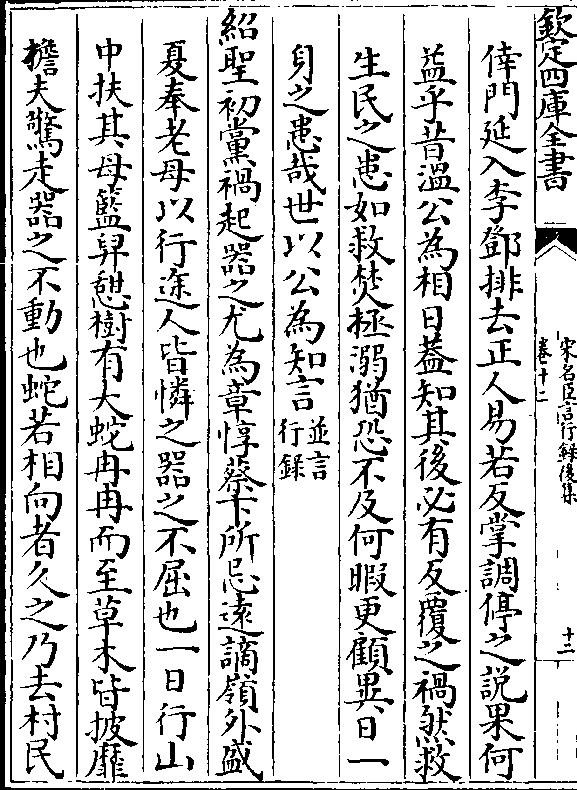 欽定四庫全書
宋名臣言行錄後集
卷十二
十二
倖門延入李鄧排去正人易若反掌調停之說果何
益乎昔溫公為相日葢知其後必有反覆之禍然救
生民之患如救焚拯溺猶恐不及何暇更顧異日一
身之患哉世以公為知言並言行錄
紹聖初黨禍起器之尤為章惇蔡卞所忌遠謫嶺外盛
夏奉老母以行途人皆憐之器之不屈也一日行山
中扶其母籃舁憩樹有大蛇冉冉而至草木皆披靡
擔夫驚走器之不動也蛇若相向者久之乃去村民